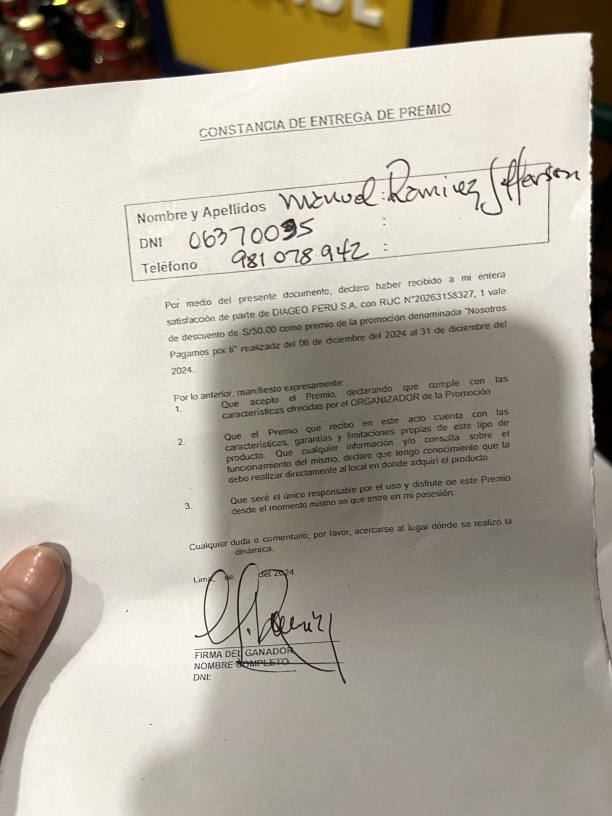 CONSTANCIA DE ENTREGA DE PREMIO
Nombre y Apellidos Manuel Ramirez Jefferson
DNI 06370095 :
Teléfono 981 078 942 :
Por medio del presente documento, declaro haber recibido a mi entera
satisfacción de parte de DIAGEO PERU S.A. con RUC N°20263158327, 1 vale
de descuento de S/50.00 como premio de la promoción denominada "Nosotros
Pagamos por ti" realizada del 06 de diciembre del 2024 al 31 de diciembre del
2024.
Por lo anterior, manifiesto expresamente:
1. Que acepto el Premio, declarando que cumple con las
características ofrecidas por el ORGANIZADOR de la Promoción
2. Que el Premio que recibo en este acto cuenta con las
características, garantías y limitaciones propias de este tipo de
producto. Que cualquier información y/o consulta sobre el
funcionamiento del mismo, declaro que tengo conocimiento que la
debo realizar directamente al local en donde adquirí el producto
3. Que seré el único responsable por el uso y disfrute de este Premio
desde el momento mismo en que entre en mi posesión.
Cualquier duda o comentario, por favor, acercarse al lugar dónde se realizó la
dinámica.
Lima, de del 2024
FIRMA DEL GANADOR
NOMBRE COMPLETO
DNI: